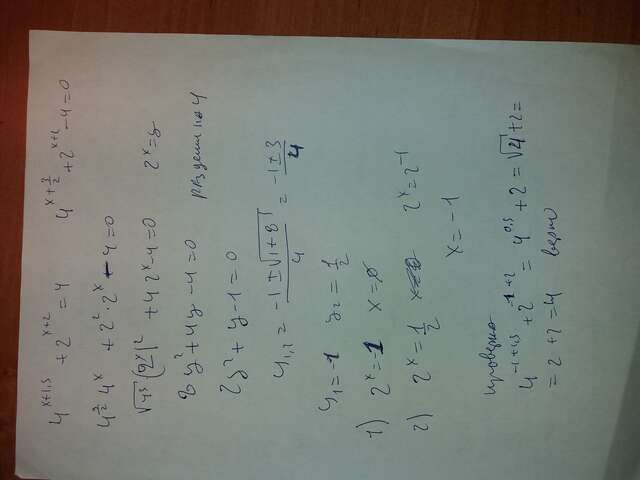 4^{x+1,5} + 2^{x+2} = 4    4^{x+\frac{3}{2}} + 2^{x+2} - 4 = 0
4^{\frac{3}{2}} 4^x + 2^2 \cdot 2^x - 4 = 0
\sqrt{4^3} (2^x)^2 + 4 2^x - 4 = 0    2^x = y
8y^2 + 4y - 4 = 0    разделим на 4
2y^2 + y - 1 = 0
y_{1,2} = \frac{-1 ± \sqrt{1+8}}{4} = \frac{-1 ± 3}{4}
y_1 = -1    y_2 = \frac{1}{2}
1) 2^x = -1    x = ø
2) 2^x = \frac{1}{2}    2^x = 2^{-1}
x = -1
проверяю
4^{-1+1,5} + 2^{-1+2} = 4^{0,5} + 2 = \sqrt{4} + 2 =
= 2 + 2 = 4    верно